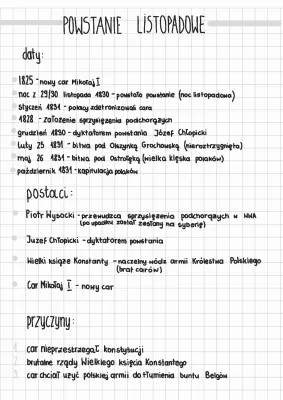 POWSTANIE LISTOPADOWE
daty:
1825 - nowy car Mikołaj I
noc z 29/30 listopada 1830 - powstało powstanie (noc listopadowa)
styczeń 1831 - polacy zdetronizowali cara
1828 - założenie sprzysiężenia podchorążych
grudzień 1830 - dyktatorem powstania Józef Chłopicki
luty 25 1831 - bitwa pod Olszynką Grochowską (nierozstrzygnięta)
maj 26 1831 - bitwa pod Ostrołęką (wielka klęska polaków)
październik 1831 - kapitulacja polaków
postaci:
Piotr Wysocki - przewódzca sprzysiężenia podchorążych w WWA
(po upadku został zesłany na syberię)
Józef Chłopicki - dyktatorem powstania
Wielki książe Konstanty - naczelny wódz armii Królestwa Polskiego
(brat carów)
Car Mikołaj I - nowy car
przyczyny:
1. car nieprzestrzegał konstytucji
2. brutalne rządy Wielkiego księcia Konstantego
3. car chciał użyć polskiej armii do tłumienia buntu Belgów